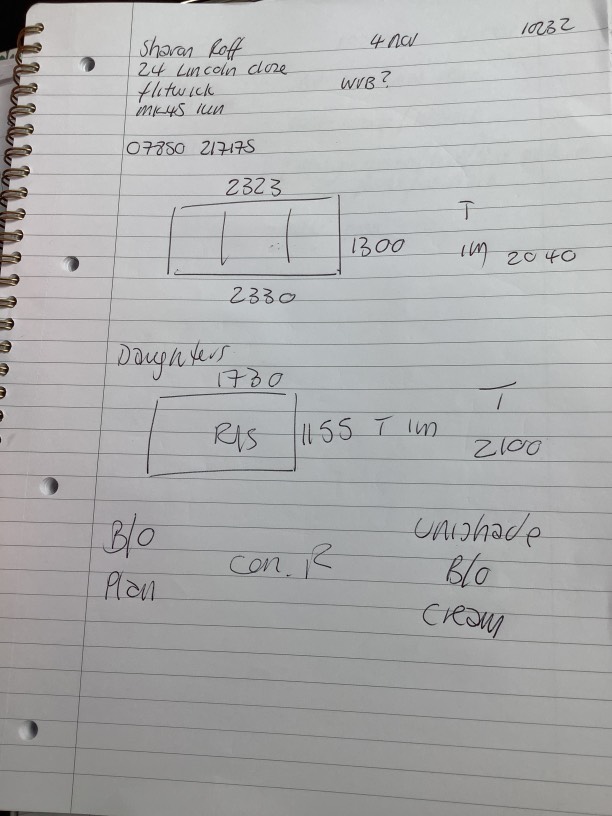 10232
Sharon Roff 4 nov
24 Lincoln close
flitwick WVB?
MK45
07850 217175
2323
T
1300 1m 2040
2330
Daughters
1730
R/S 1155 T 1m T
2100
B/O con. R Unishade
Plan B/O
Cream